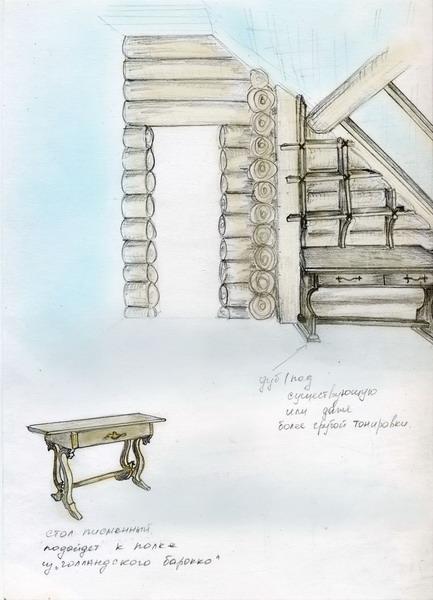 дуб/под
существующую
или даже
более грубой тонировки.
стол письменный
подойдет к полке
из "голландского барокко"